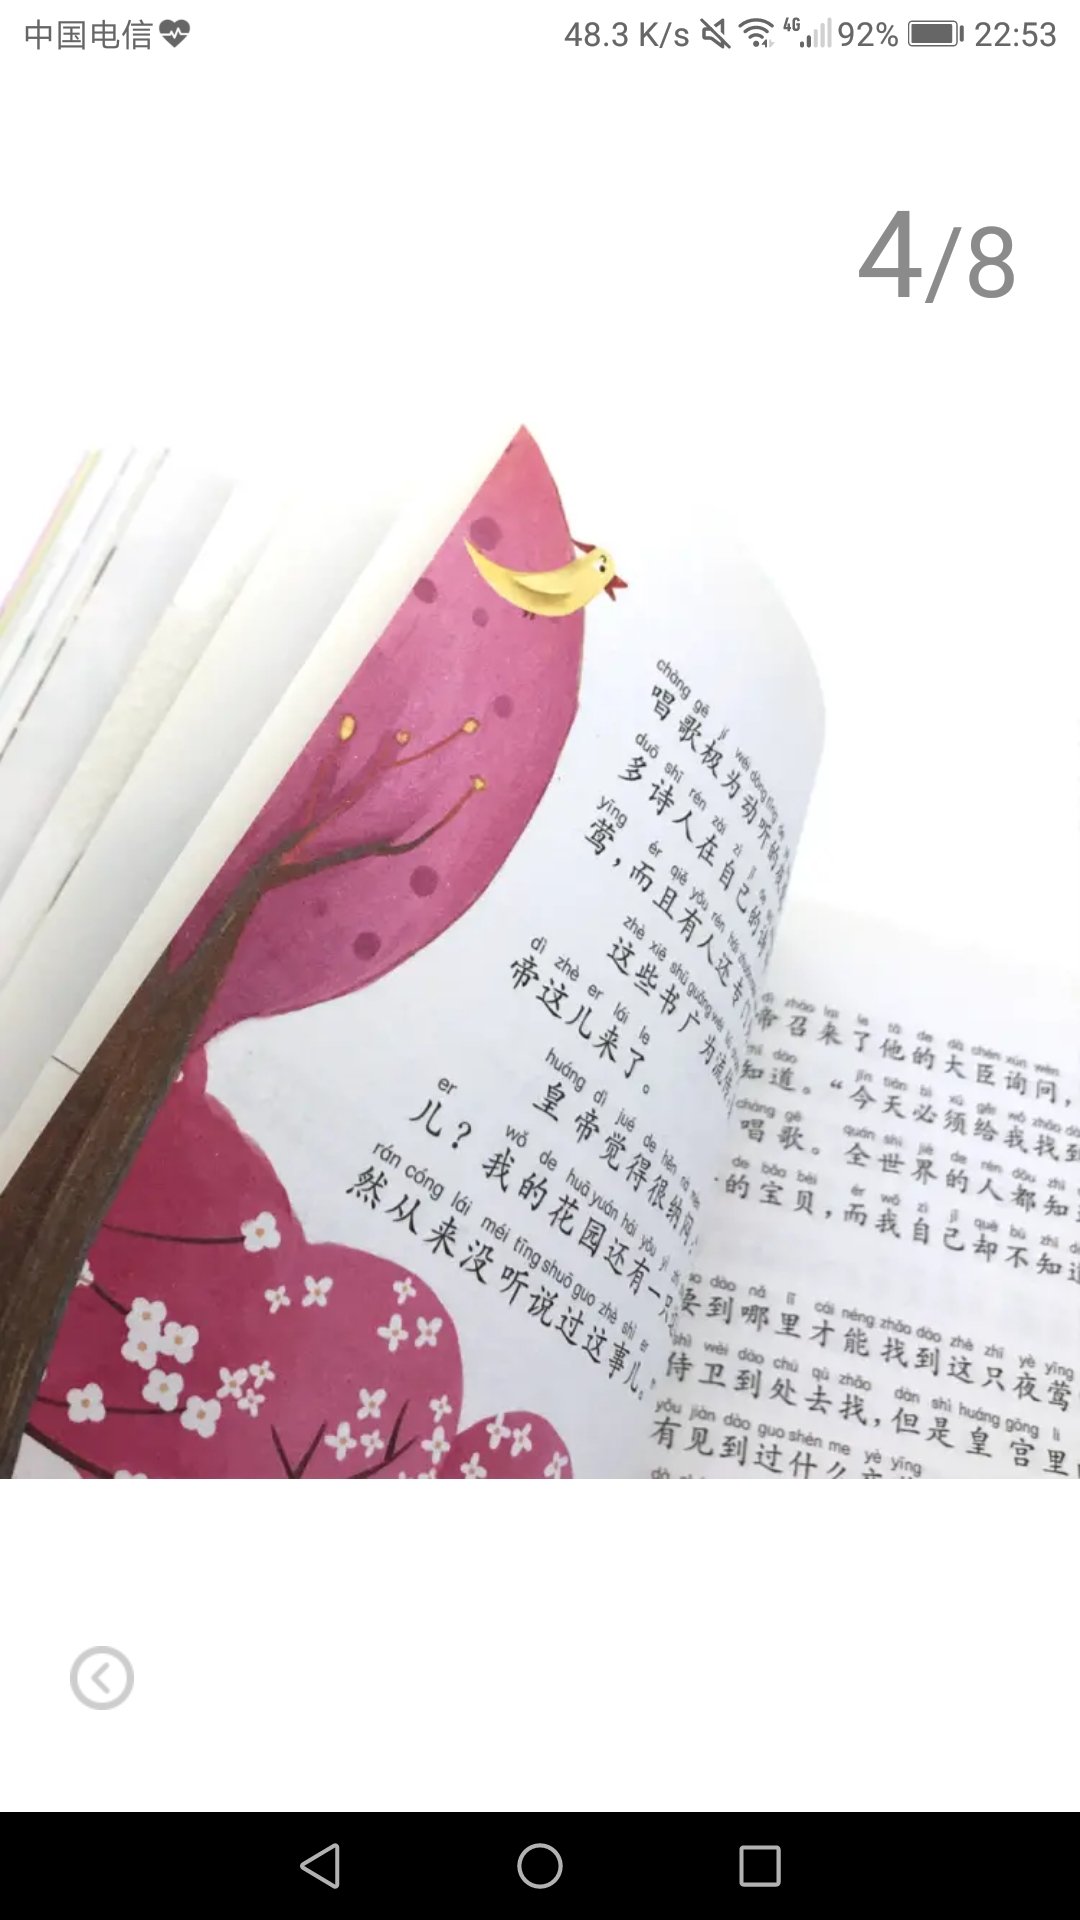 中国电信
48.3 K/s 4G 92% 22:53
4/8
chàng gē jí wéi dòng tīng
唱歌极为动听的
duō shī rén zài zì jǐ de
多诗人在自己的诗
yīng ér qiě yǒu rén hái
莺，而且有人还专门
zhè xiē shū guǎng wéi
这些书广为流传
dì zhè er lái le
帝这儿来了。
huáng dì jué de hěn nà mèn
皇帝觉得很纳闷：
er wǒ de huā yuán hái yǒu yì
儿？我的花园还有一只
rán cóng lái méi tīng shuō guo zhè shì er
然从来没听说过这事儿。
dì zhào lai le tā de dà chén xún wèn
帝召来了他的大臣询问，
zhī dào jīn tiān bì xū gěi wǒ zhǎo dào
知道。“今天必须给我找到
chàng gē quán shì jiè de rén dōu zhī
唱歌。全世界的人都知
de bǎo bèi ér wǒ zì jǐ què bù zhī dào
的宝贝，而我自己却不知道
yào dào nǎ lǐ cái néng zhǎo dào zhè zhī yè yīng
要到哪里才能找到这只夜莺
shì wèi dào chù qù zhǎo dàn shì huáng gōng lǐ
侍卫到处去找，但是皇宫里
yǒu jiàn dào guo shén me yè yīng
有见到过什么夜莺